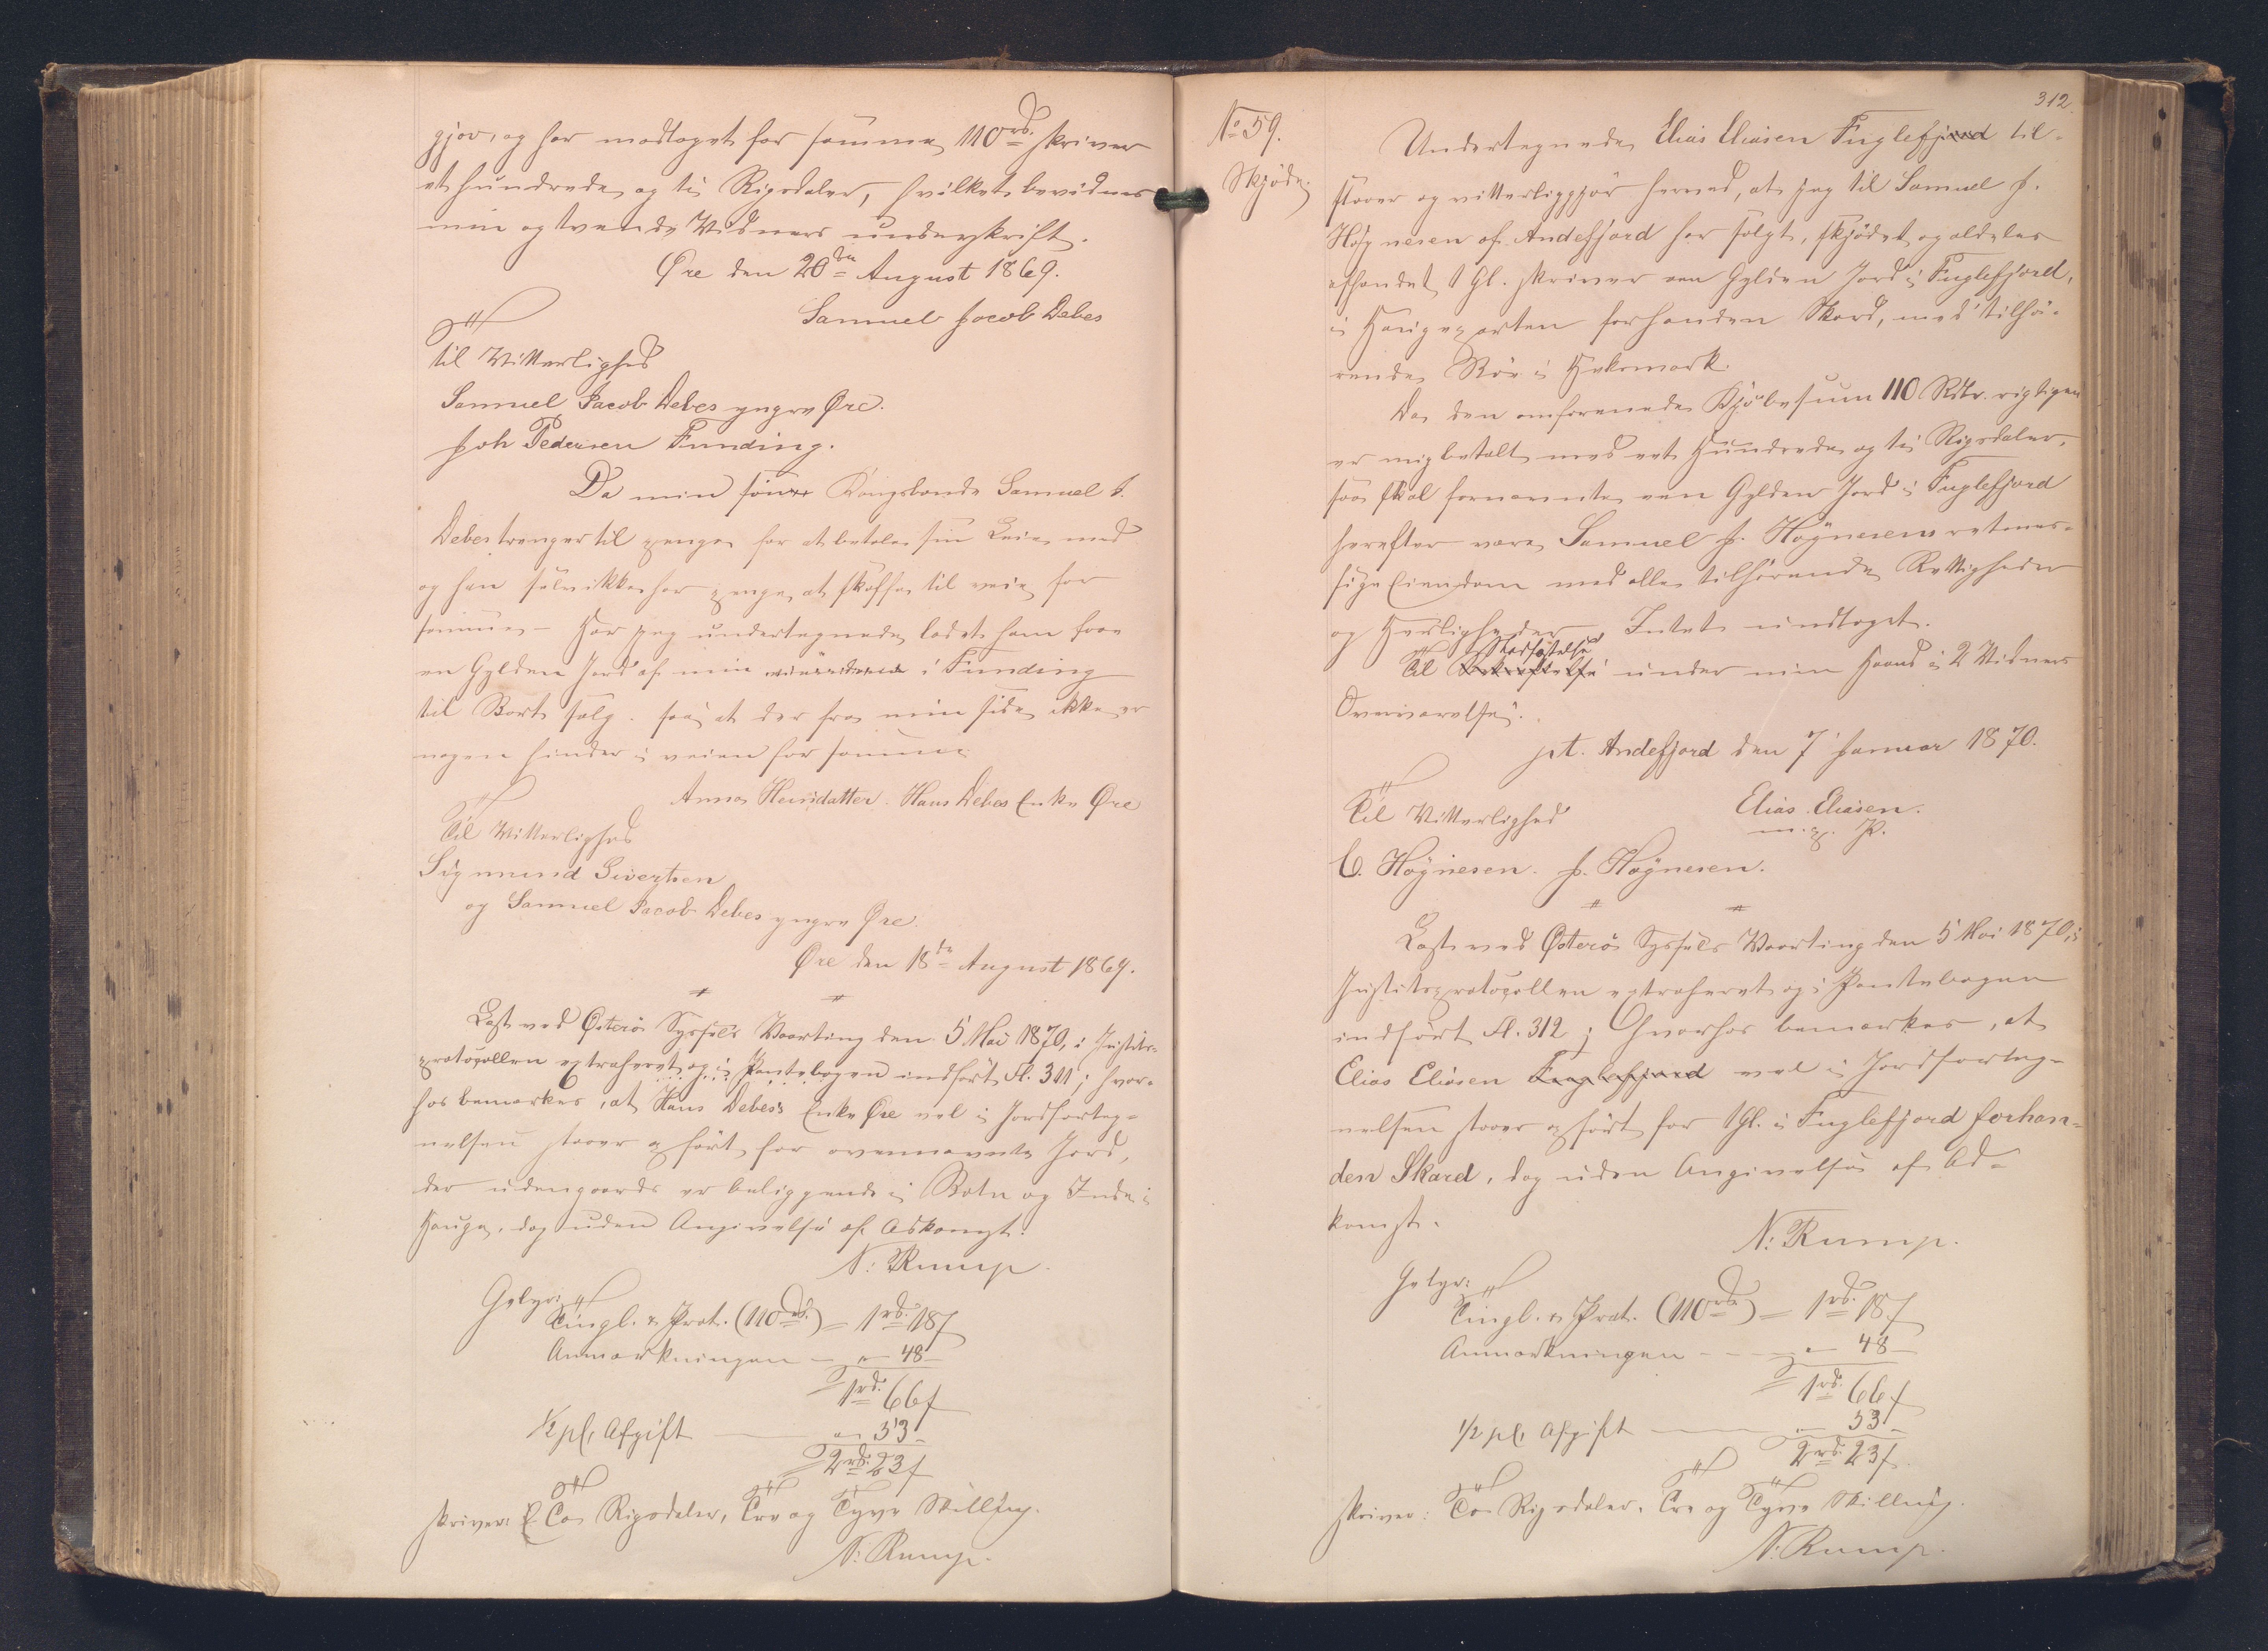 gjør, og har modtaget for samme 110rd. skriver
et hundrede og ti Rigsdaler, hvilket bevidnes
min og tvende Vidners underskrift.
Øre den 20de August 1869.
Samuel Jacob Debes
til Vitterlighed
Samuel Jacob Debes yngre Øre.
Joh Pedersen Funding.
Da min søn Kongsbonde Samuel J.
Debes trenger til penge for at betale sin Leie med
og han selv ikke har penge at skaffe til veie for
samme - Har jeg undertegnede ladet ham faae
en Gylden Jord af min i Funding
til Bort salg. saa at der fra min side ikke er
nogen hinder i veien for samme.
Anna Heinsdatter. Hans Debes Enke Øre
Til Vitterlighed
Sigmund Sivertsen
og Samuel Jacob Debes yngre Øre.
Øre den 18de August 1869.
Læst ved Østerø Syssels Vaarting den 5 Mai 1870, i Justits-
protocollen extraheret og i Pantebogen indført fl. 311; hvor-
hos bemærkes, at Hans Debes's Enke Øre vel i Jordforteg-
nelsen staaer opført for ovennævnte Jord,
der udengaards er beliggende i Botn og Inde i
Hauge, dog uden Angivelse af Adkomst.
N: Rump.
Gebyr:
Tingl. & Prot. (110rd.) = 1rd. 18ſ
Anmærkningen - " 48 -
1rd. 66ſ
1/2 pCt Afgift - " 53 -
2rd. 23ſ
skriver: To Rigsdaler, Tre og Tyve Skilling.
N: Rump.
312.
No 59.
Skjøde.
Undertegnede Elias Eliasen Fuglefjord til-
staaer og vitterliggjør herved, at jeg til Samuel J.
Høgnesen af Andefjord har solgt, skjødet og aldeles
afhændet 1 Gl. skriver een Gylden Jord i Fuglefjord,
i Haugeparten forhanden Skard, med tilhø-
rende Røe i Hakemark.
Da den omforenede Kjøbesum 110 Rdlr. rigtigen
er mig betalt med eet Hundrede og ti Rigsdaler,
saa skal fornævnte een Gylden Jord i Fuglefjord
herefter være Samuel J. Høgnesens retmæs-
sige Eiendom med alle tilhørende Rettigheder
og Herligheder Intet undtaget.
Stadfæstelse
Til Bekræftelse under min Haand i 2 Vidners
Overværelse.
pt. Andefjord den 7 Januar 1870.
Til Vitterlighed
Elias Eliasen.
m. p. P.
C. Høgnesen. J. Høgnesen.
Læst ved Østerø Syssels Vaarting den 5 Mai 1870, i
Justitsprotocollen extraheret og i Pantebogen
indført fl. 312; hvorhos bemærkes, at
Elias Eliasen Fuglefjord vel i Jordforteg-
nelsen staaer opført for 1 Gl. i Fuglefjord forhan-
den Skard, dog uden Angivelse af Ad-
komst.
N: Rump.
Gebyr:
Tingl. & Prot. (110rd.) = 1rd. 18ſ
Anmærkningen - - - " 48 -
1rd. 66ſ
1/2 pCt Afgift - " 53 -
2rd. 23ſ
skriver: To Rigsdaler, Tre og Tyve Skilling.
N: Rump.